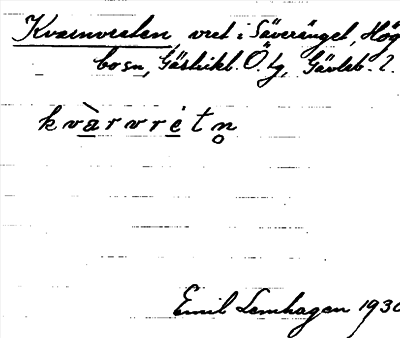 Kvarnvreten vret i Säveränget, Hög
bo sn, Gästrikl. Ö. tg, Gävleb. l.
kvàrvrétn̥
Emil Lemhagen 1930